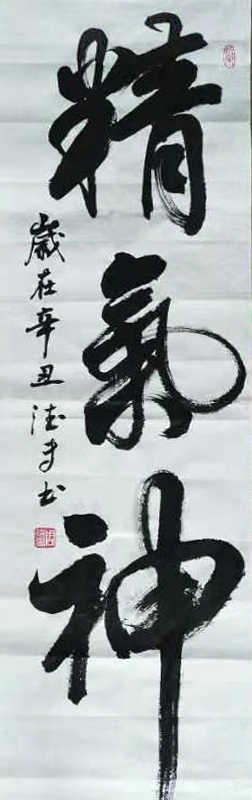 精氣神
歲在辛丑德才书